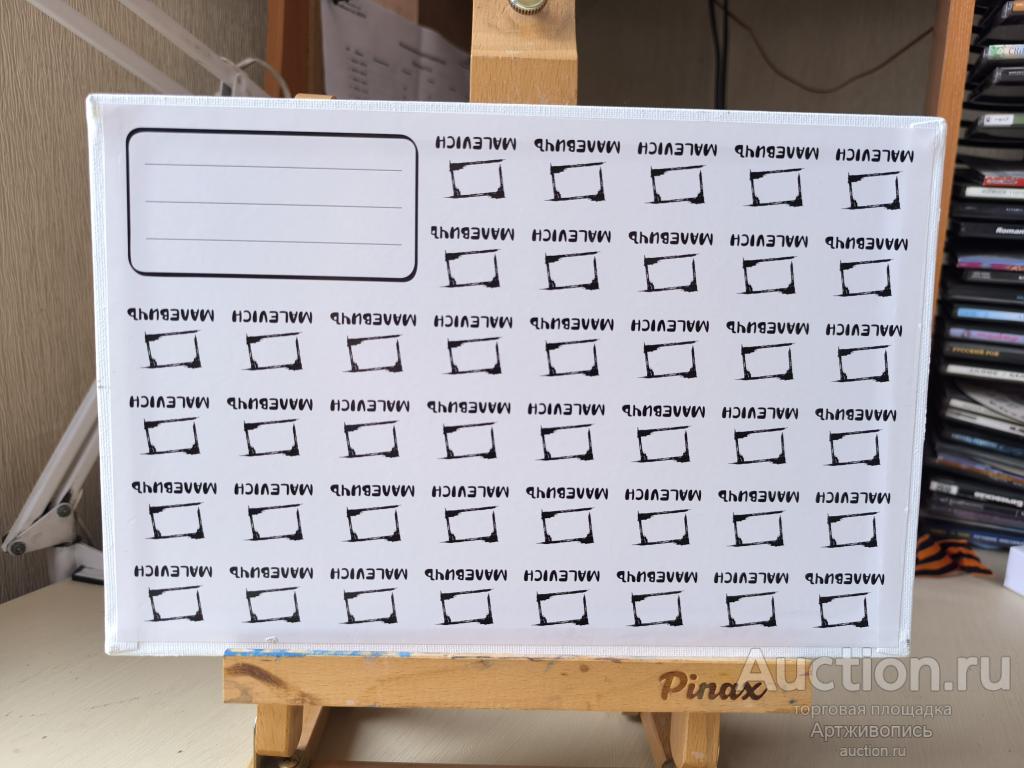 MALEVICH МАЛЕВИЧЪ MALEVICH МАЛЕВИЧЪ MALEVICH
МАЛЕВИЧЪ MALEVICH МАЛЕВИЧЪ MALEVICH МАЛЕВИЧЪ
МАЛЕВИЧЪ MALEVICH МАЛЕВИЧЪ MALEVICH МАЛЕВИЧЪ MALEVICH МАЛЕВИЧЪ MALEVICH
MALEVICH МАЛЕВИЧЪ MALEVICH МАЛЕВИЧЪ MALEVICH МАЛЕВИЧЪ MALEVICH МАЛЕВИЧЪ
МАЛЕВИЧЪ MALEVICH МАЛЕВИЧЪ MALEVICH МАЛЕВИЧЪ MALEVICH МАЛЕВИЧЪ MALEVICH
MALEVICH МАЛЕВИЧЪ MALEVICH МАЛЕВИЧЪ MALEVICH МАЛЕВИЧЪ MALEVICH МАЛЕВИЧЪ
Pinax
Auction.ru
торговая площадка
Артживопись
auction.ru